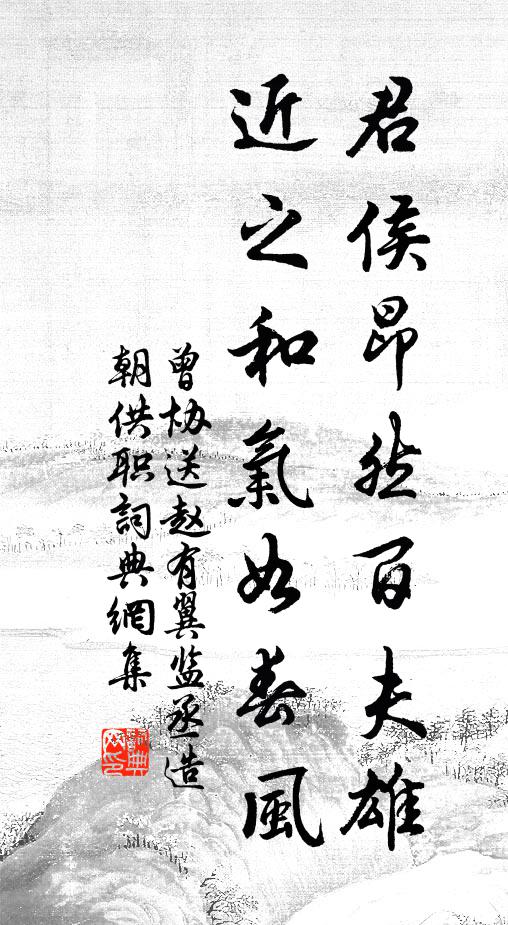 君侯昂然百夫雄
近之和氣如春風
曾协送赵有翼监丞造
朝供职詞典網集